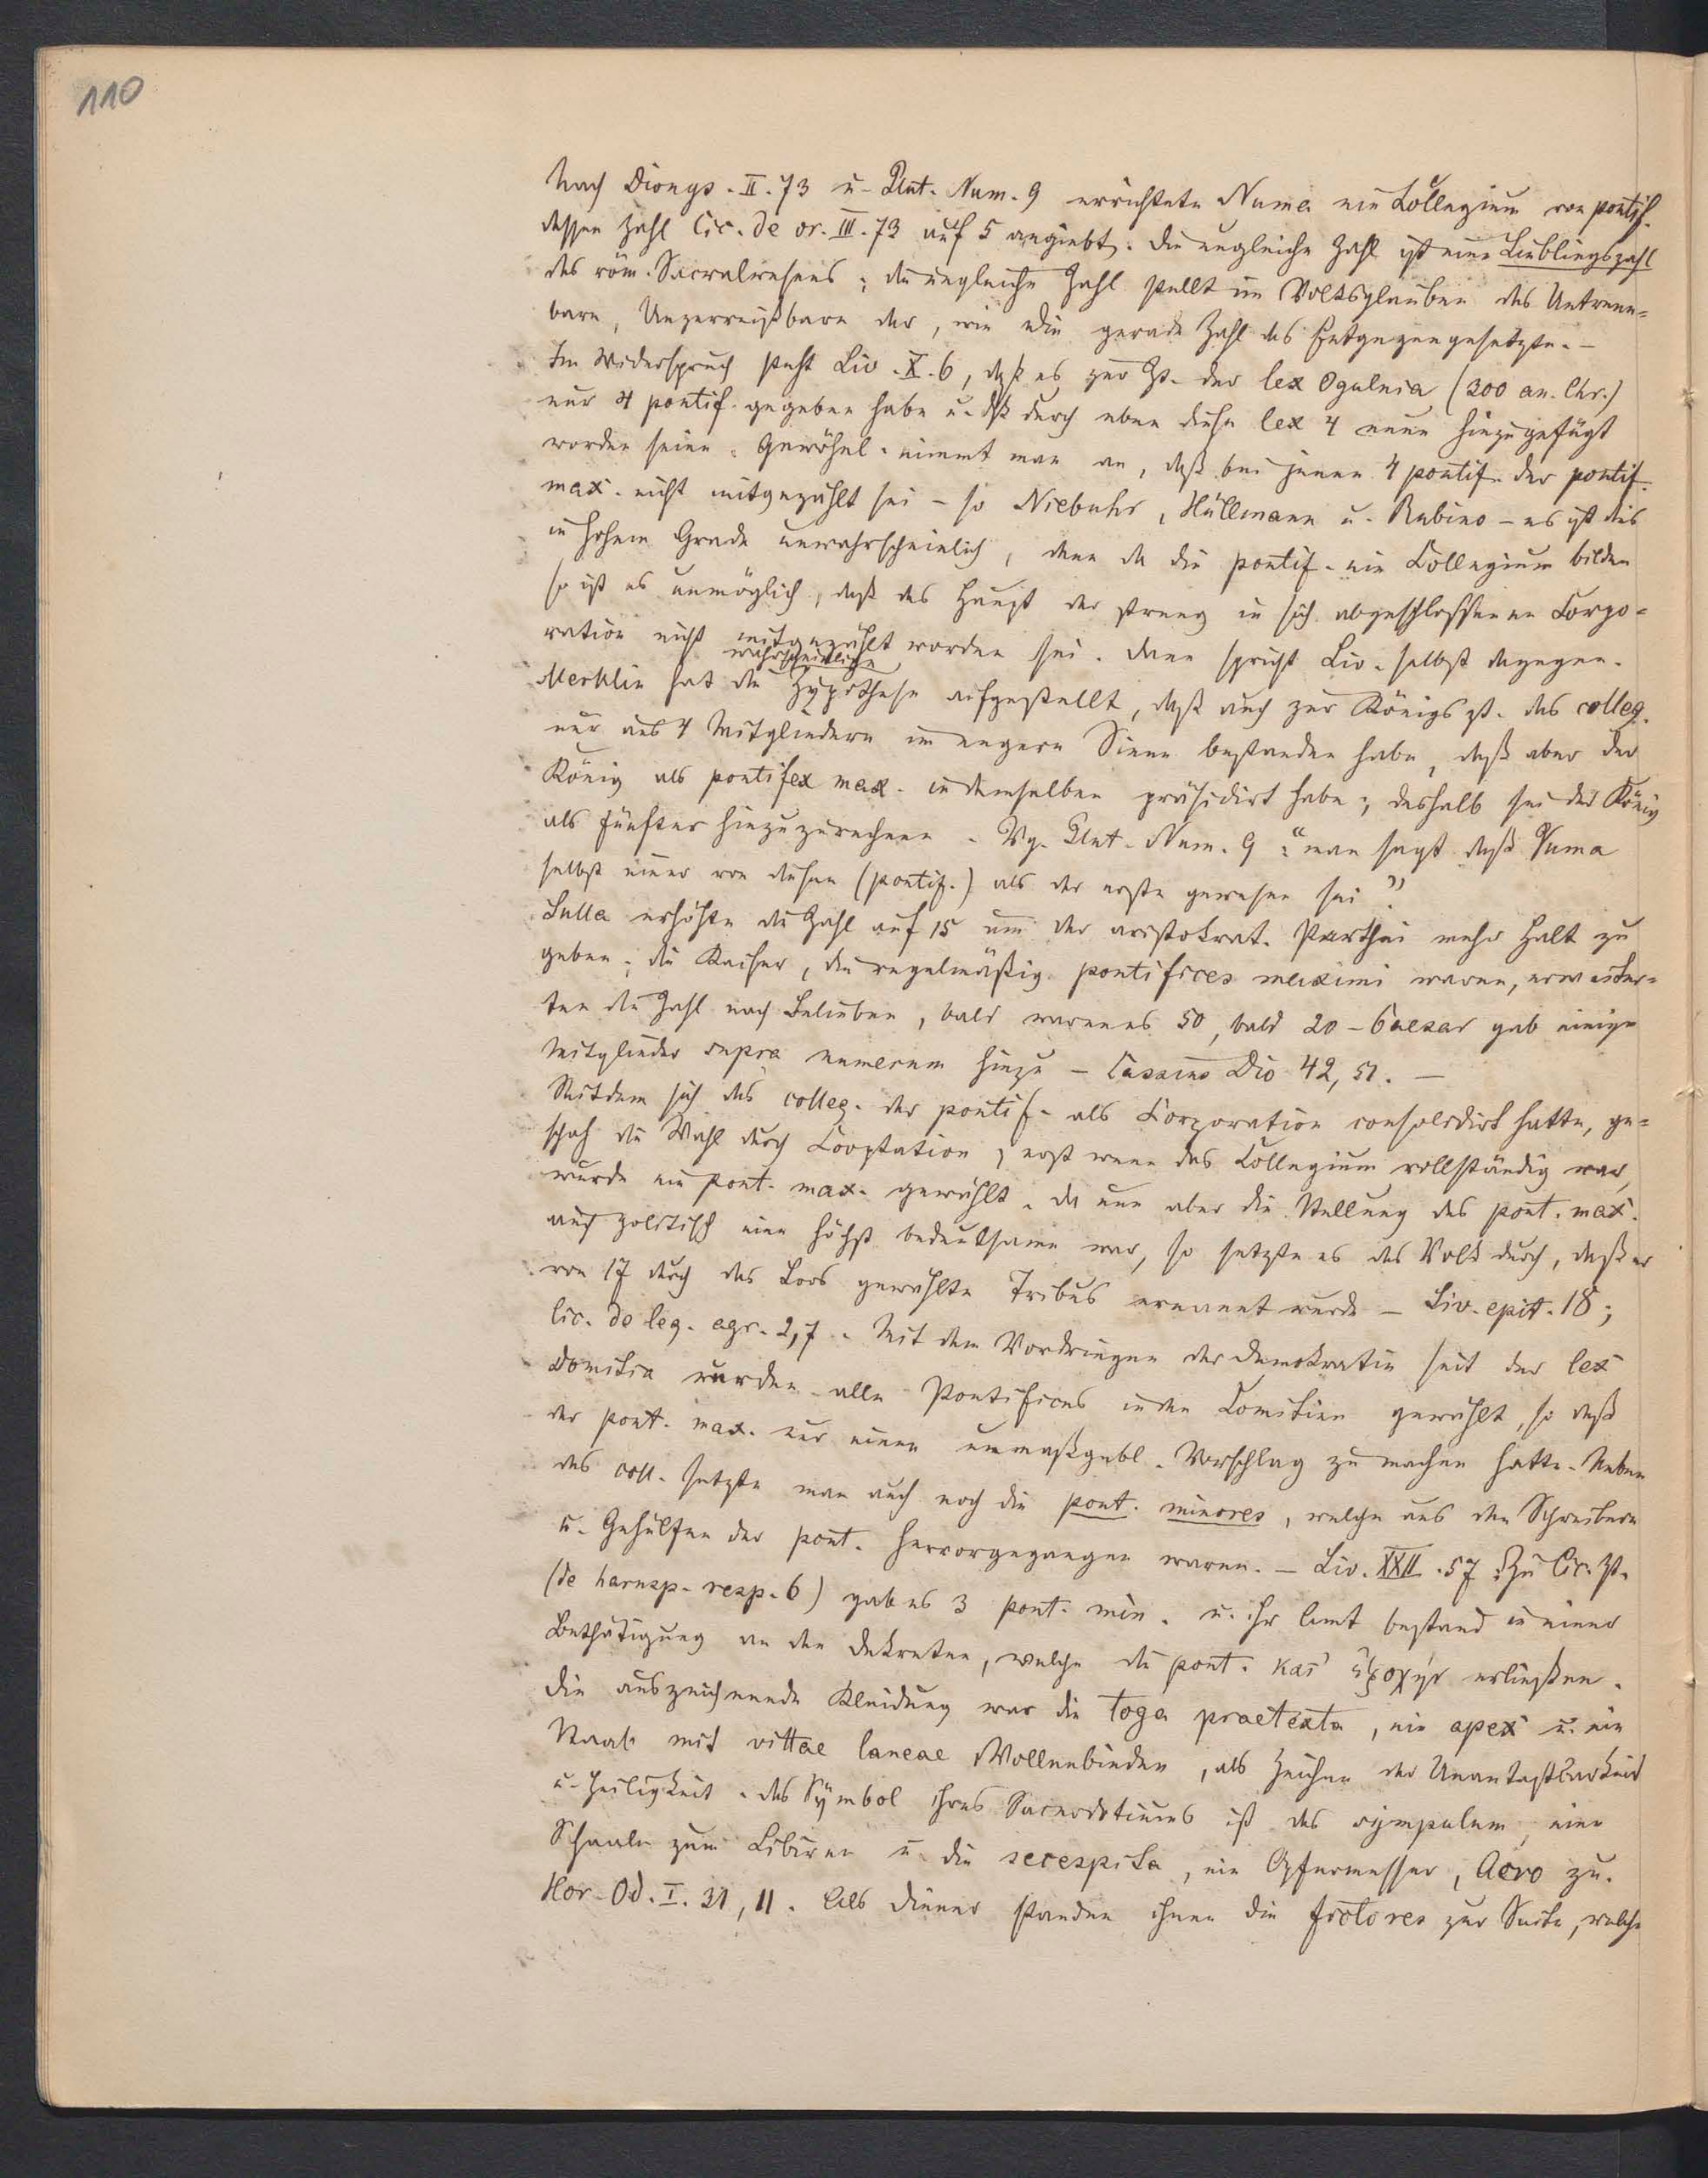 110
Nach Dionys. II. 73 u. Plut. Num. 9 errichtete Numa ein Collegium von pontif.
dessen Zahl Cic. de or. III. 73 auf 5 angiebt. Die ungleiche Zahl ist eine Lieblingszahl
des röm. Sacralwesens; die ungleiche Zahl stellt im Volksglauben das Untrenn=
bare, Unzerreißbare dar, wie die gerade Zahl das Entgegengesetzte. –
Im Widerspruch steht Liv. X. 6, daß es zur Zt. der lex Ogulnia (300 an. Chr.)
nur 4 pontif. gegeben habe u. dß durch eben diese lex 4 neue hinzugefügt
worden seien. Gewöhnl. nimmt man an, daß bei jenen 4 pontif. der pontif.
max. nicht mitgezählt sei – so Niebuhr, Hüllmann u. Rubino – es ist dies
in hohem Grade unwahrscheinlich, denn da die pontif. ein Collegium bilden
so ist es unmöglich, daß das Haupt der streng in sich abgeschlossenen Corpo=
ration nicht mitgezählt worden sei. Dann spricht Liv. selbst dagegen.
wahrscheinliche
Merklin hat die Hypothese aufgestellt, daß auch zur Königszt. das colleg.
nur aus 4 Mitgliedern im engern Sinne bestanden habe, daß aber der
König als pontifex max. in demselben präsidirt habe; deshalb sei der König
als Fünfter hinzuzurechnen. Vg. Plut. Num. 9 : "man sagt daß Numa
selbst einer von diesen (pontif.) als der erste gewesen sei".
Sulla erhöhte die Zahl auf 15 um der aristokrat. Parthei mehr Halt zu
geben; die Kaiser, die regelmäßig pontifices maximi waren, erweiter=
ten die Zahl nach Belieben, bald waren es 50, bald 20 – Caesar gab einige
Mitglieder supra numerum hinzu – Cassius Dio 42, 51. –
Seitdem sich das colleg. der pontif. als Corporation consolidirt hatte, ge=
schah die Wahl durch Cooptation; erst wenn das Collegium vollständig war,
wurde ein pont. max. gewählt. Da nun aber die Stellung des pont. max.
auch politisch eine höchst bedeutsame war, so setzte es das Volk durch, daß er
von 17 durch das Loos gewählte Tribus ernannt wurde – Liv. epit. 18;
Cic. de leg. agr. 2,7. Mit dem Vordringen der Demokratie seit der lex
Domitia wurden alle Pontifices in den Comitien gewählt, so daß
der pont. max. nur einen unmaßgebl. Vorschlag zu machen hatte. Neben
das coll. setzte man auch noch die pont. minores, welche aus den Schreibern
u. Gehülfen der pont. hervorgegangen waren. – Liv. XXII. 57. Zu Cic. Zt.
(de harusp. resp. 6) gab es 3 pont. min. u. ihr Amt bestand in einer
Bethätigung an den Dekreten, welche die pont. κατ' ἐξοχήν erließen.
Die auszeichnende Kleidung war die toga praetexta, ein apex u. ein
Staab mit vittae laneae Wollenbinden, als Zeichen der Unantastbarkeit
u. Heiligkeit. Das Symbol ihres Sacerdotiums ist das sympulum, eine
Schaale zum Libiren u. die secespita, ein Opfermesser, Acro zu.
Hor. Od. I. 31, 11. Als Diener standen ihnen die fictores zur Seite, welche